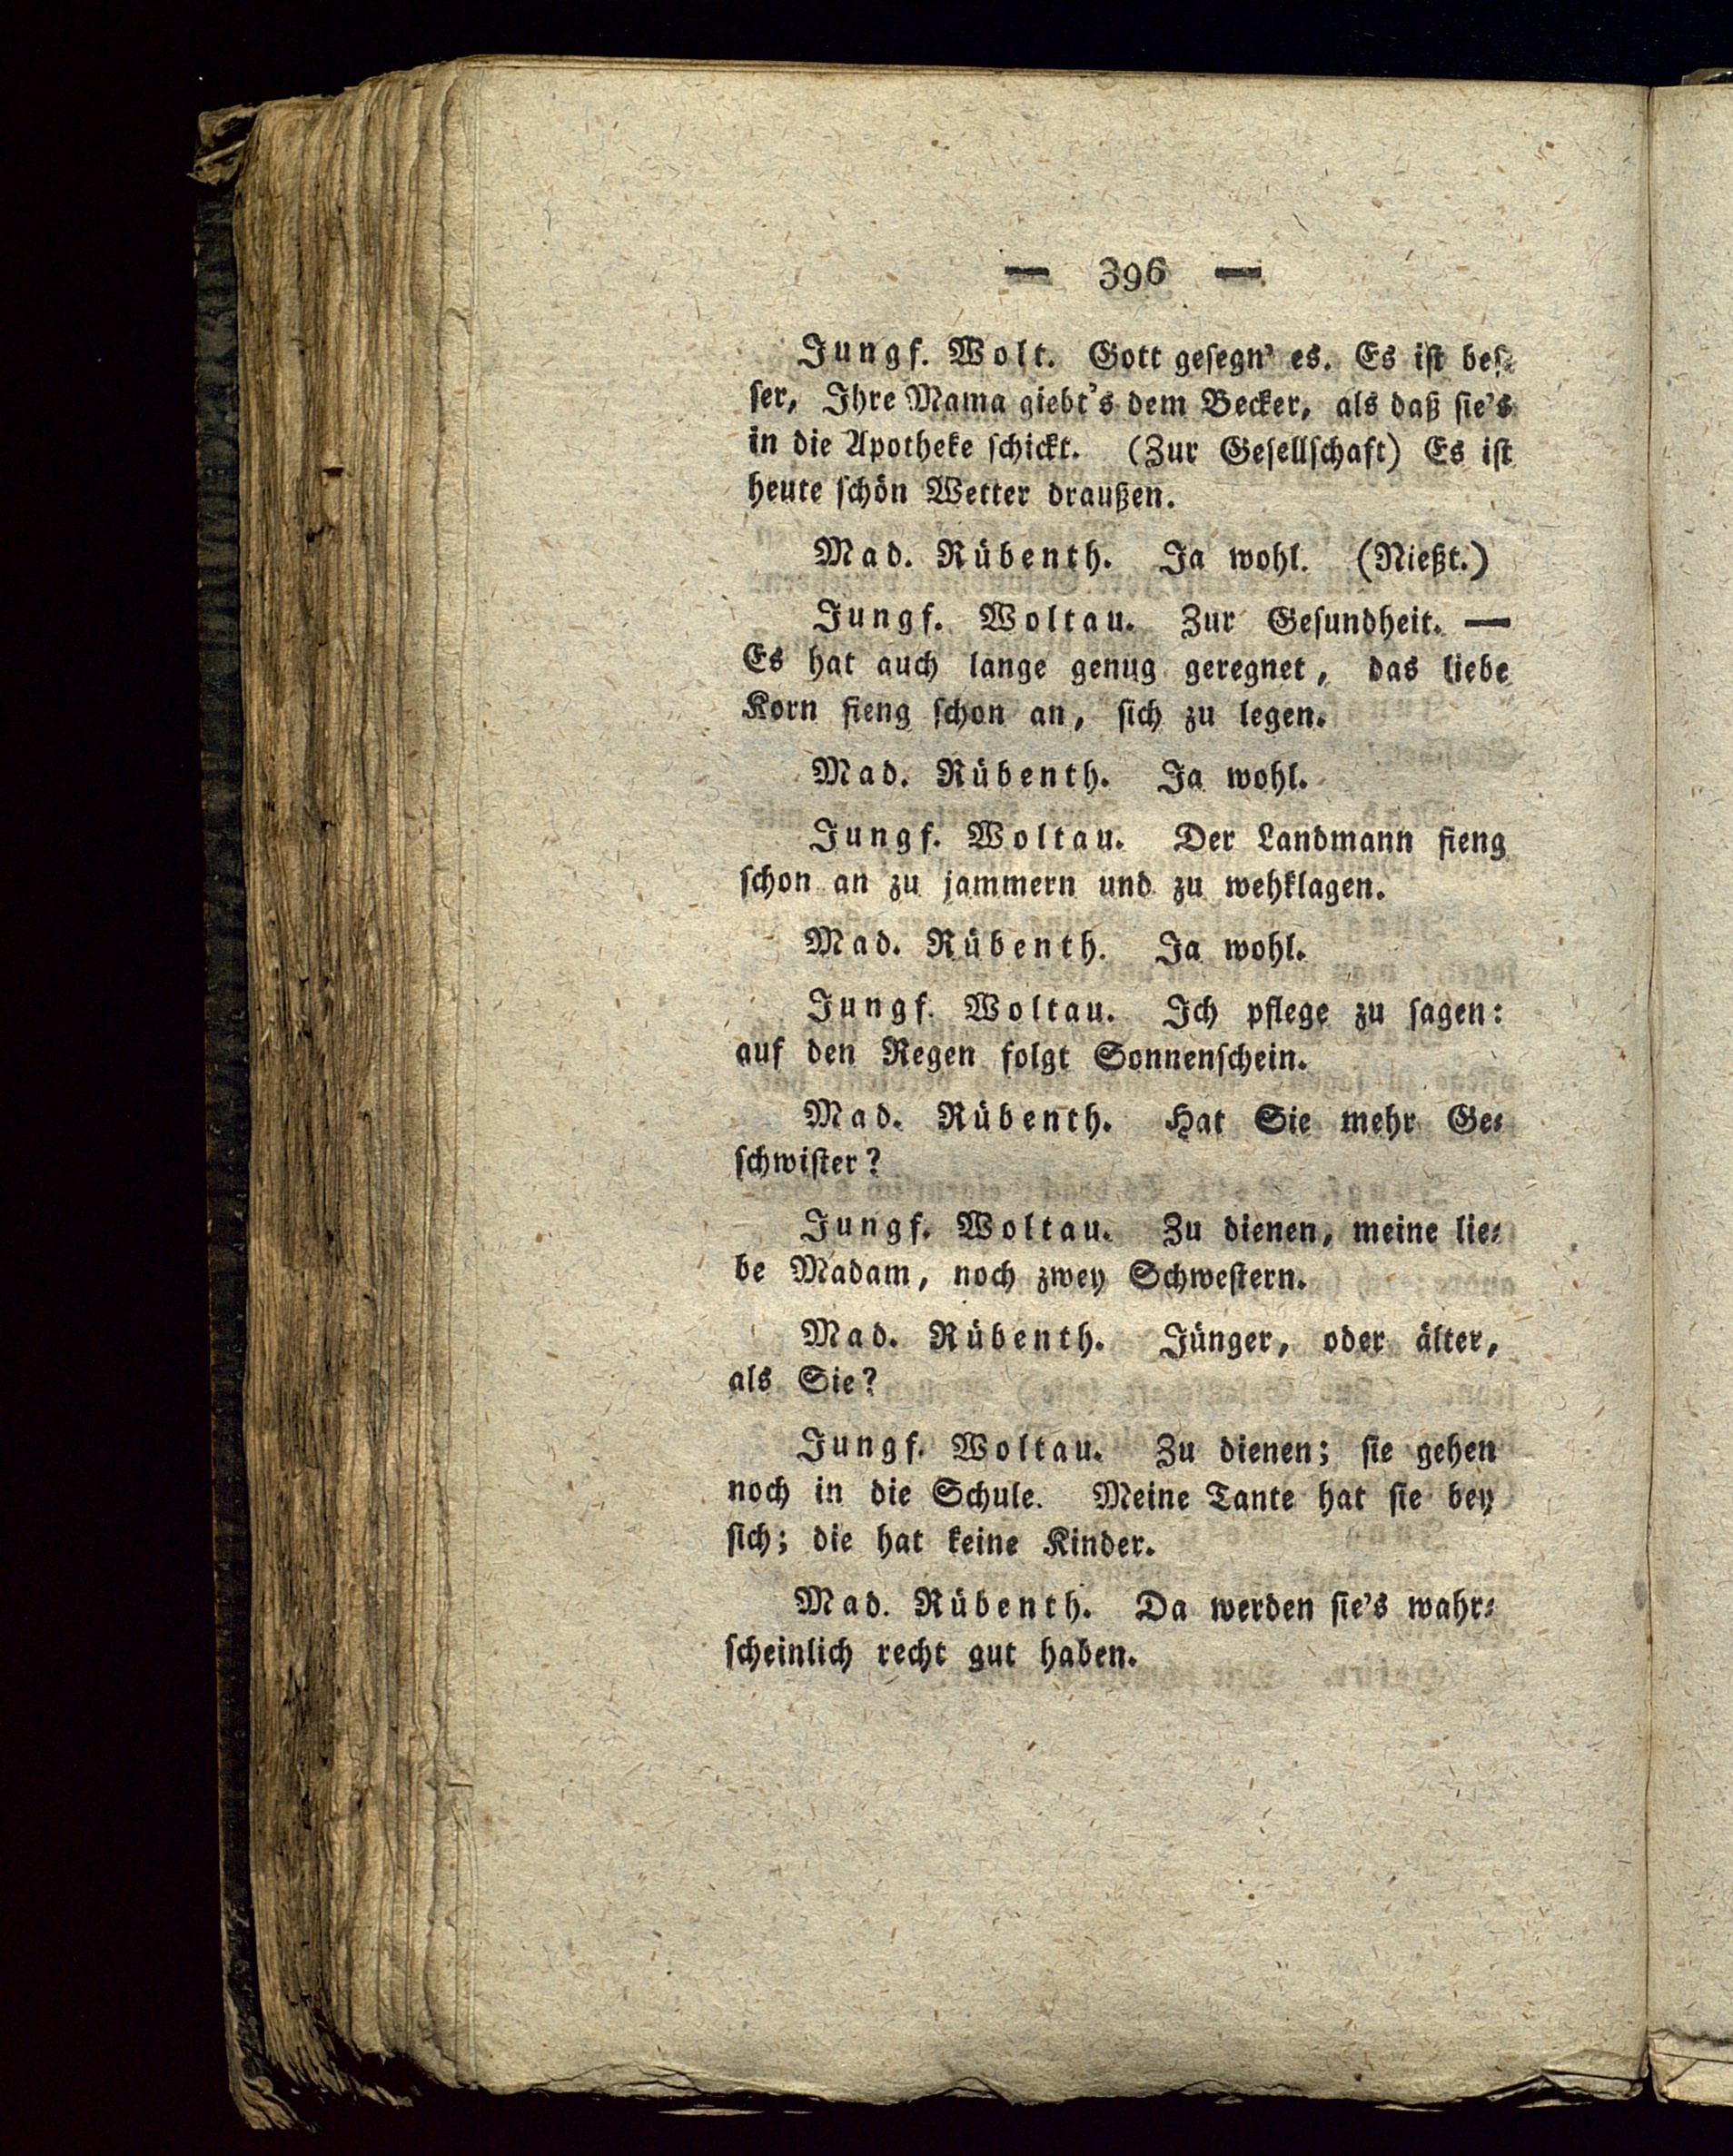 — 396 —
Jungf. Wolt. Gott geſegn' es. Es iſt beſ⸗
ſer, Ihre Mama giebt's dem Becker, als daß ſie's
in die Apotheke ſchickt. (Zur Geſellſchaft) Es iſt
heute ſchön Wetter draußen.
Mad. Rübenth. Ja wohl. (Nießt.)
Jungf. Woltau. Zur Geſundheit. —
Es hat auch lange genug geregnet, das liebe
Korn fieng ſchon an, ſich zu legen.
Mad. Rübenth. Ja wohl.
Jungf. Woltau. Der Landmann fieng
ſchon an zu jammern und zu wehklagen.
Mad. Rübenth. Ja wohl.
Jungf. Woltau. Ich pflege zu ſagen:
auf den Regen folgt Sonnenſchein.
Mad. Rübenth. Hat Sie mehr Ge⸗
ſchwiſter?
Jungf. Woltau. Zu dienen, meine lie⸗
be Madam, noch zwey Schweſtern.
Mad. Rübenth. Jünger, oder älter,
als Sie?
Jungf. Woltau. Zu dienen; ſie gehen
noch in die Schule. Meine Tante hat ſie bey
ſich; die hat keine Kinder.
Mad. Rübenth. Da werden ſie's wahr⸗
ſcheinlich recht gut haben.